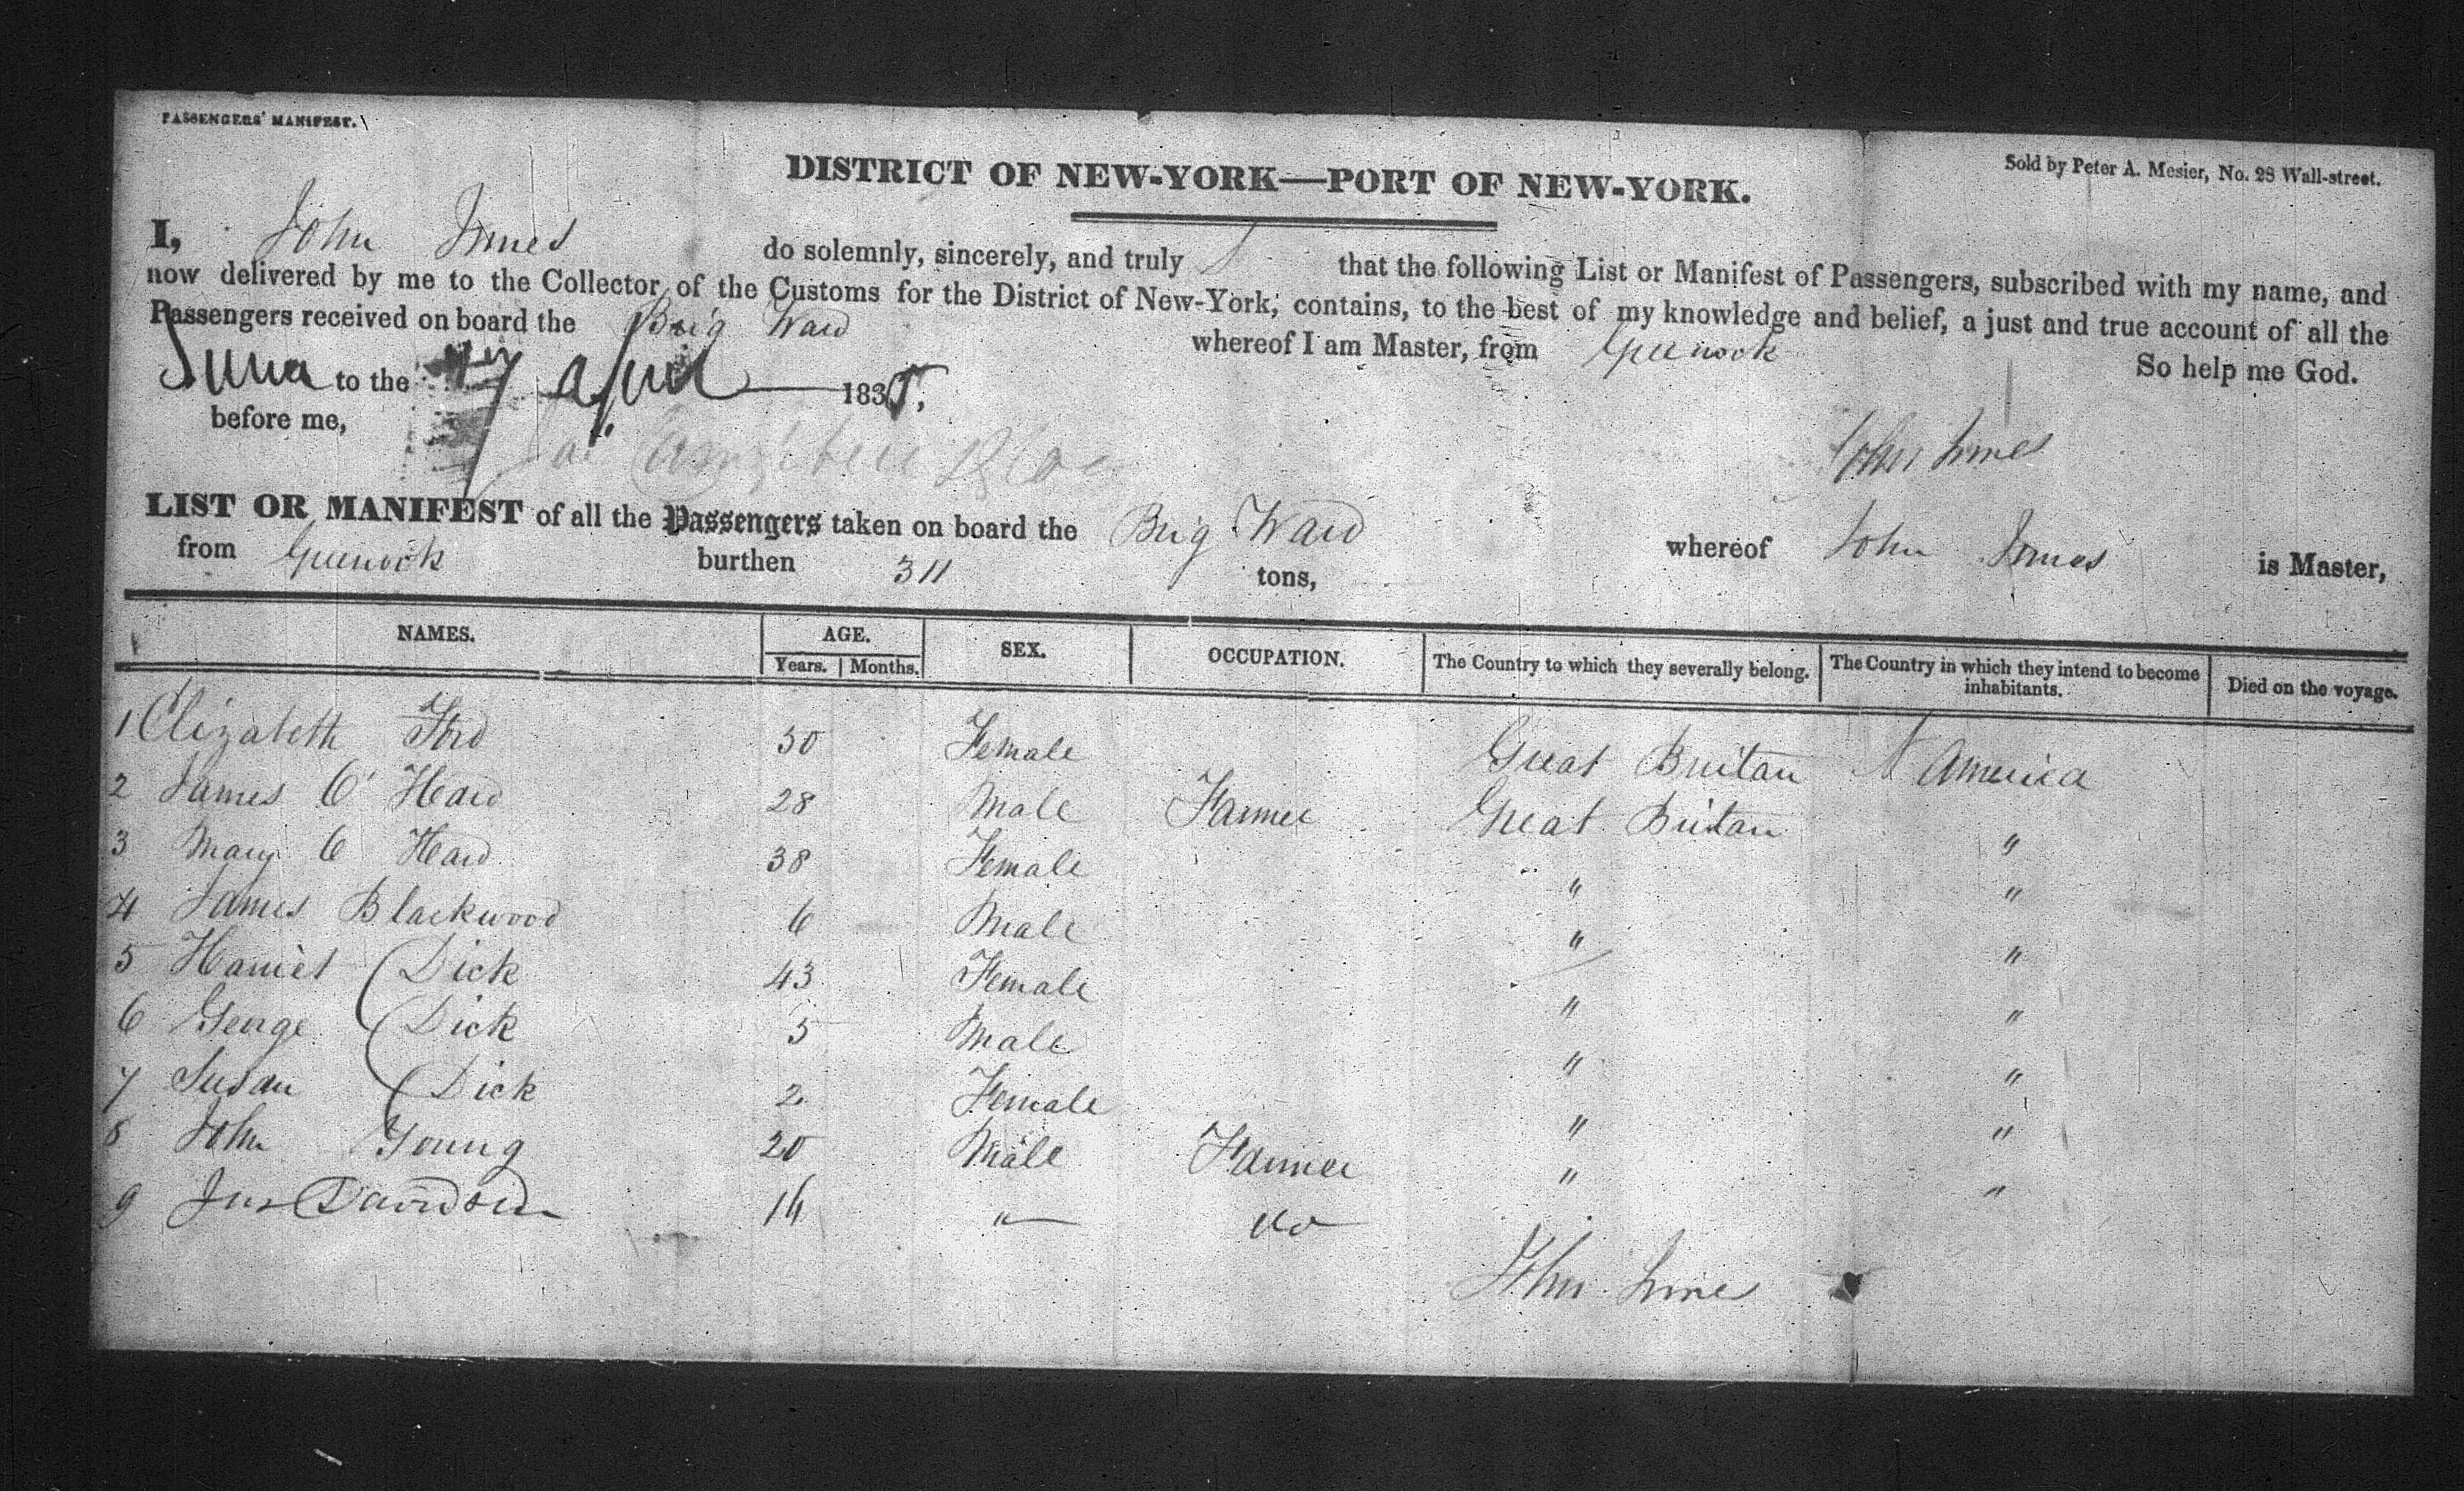 PASSENGERS' MANIFEST.
DISTRICT OF NEW-YORK—PORT OF NEW-YORK.
Sold by Peter A. Mesier, No. 28 Wall-street.
I, John Innes do solemnly, sincerely, and truly that the following List or Manifest of Passengers, subscribed with my name, and
now delivered by me to the Collector of the Customs for the District of New-York, contains, to the best of my knowledge and belief, a just and true account of all the
Passengers received on board the Brig Ward whereof I am Master, from Greenock
So help me God.
to the 7 April 1835,
before me,
John Innes
LIST OR MANIFEST of all the Passengers taken on board the Brig Ward whereof John Innes is Master,
from Greenock burthen 311 tons,
NAMES. AGE. SEX. OCCUPATION. The Country to which they severally belong. The Country in which they intend to become inhabitants. Died on the voyage.
Years. Months.
1 Elizabeth Ford 30 Female Great Britan N America
2 James O' Hard 28 Male Farmer Great Britan "
3 Mary O Hard 38 Female " "
4 James Blackwood 6 Male " "
5 Harriet Dick 43 Female " "
6 George Dick 5 Male " "
7 Susan Dick 2 Female " "
8 John Young 20 Male Farmer " "
9 Jas Davidson 16 " do
John Innes